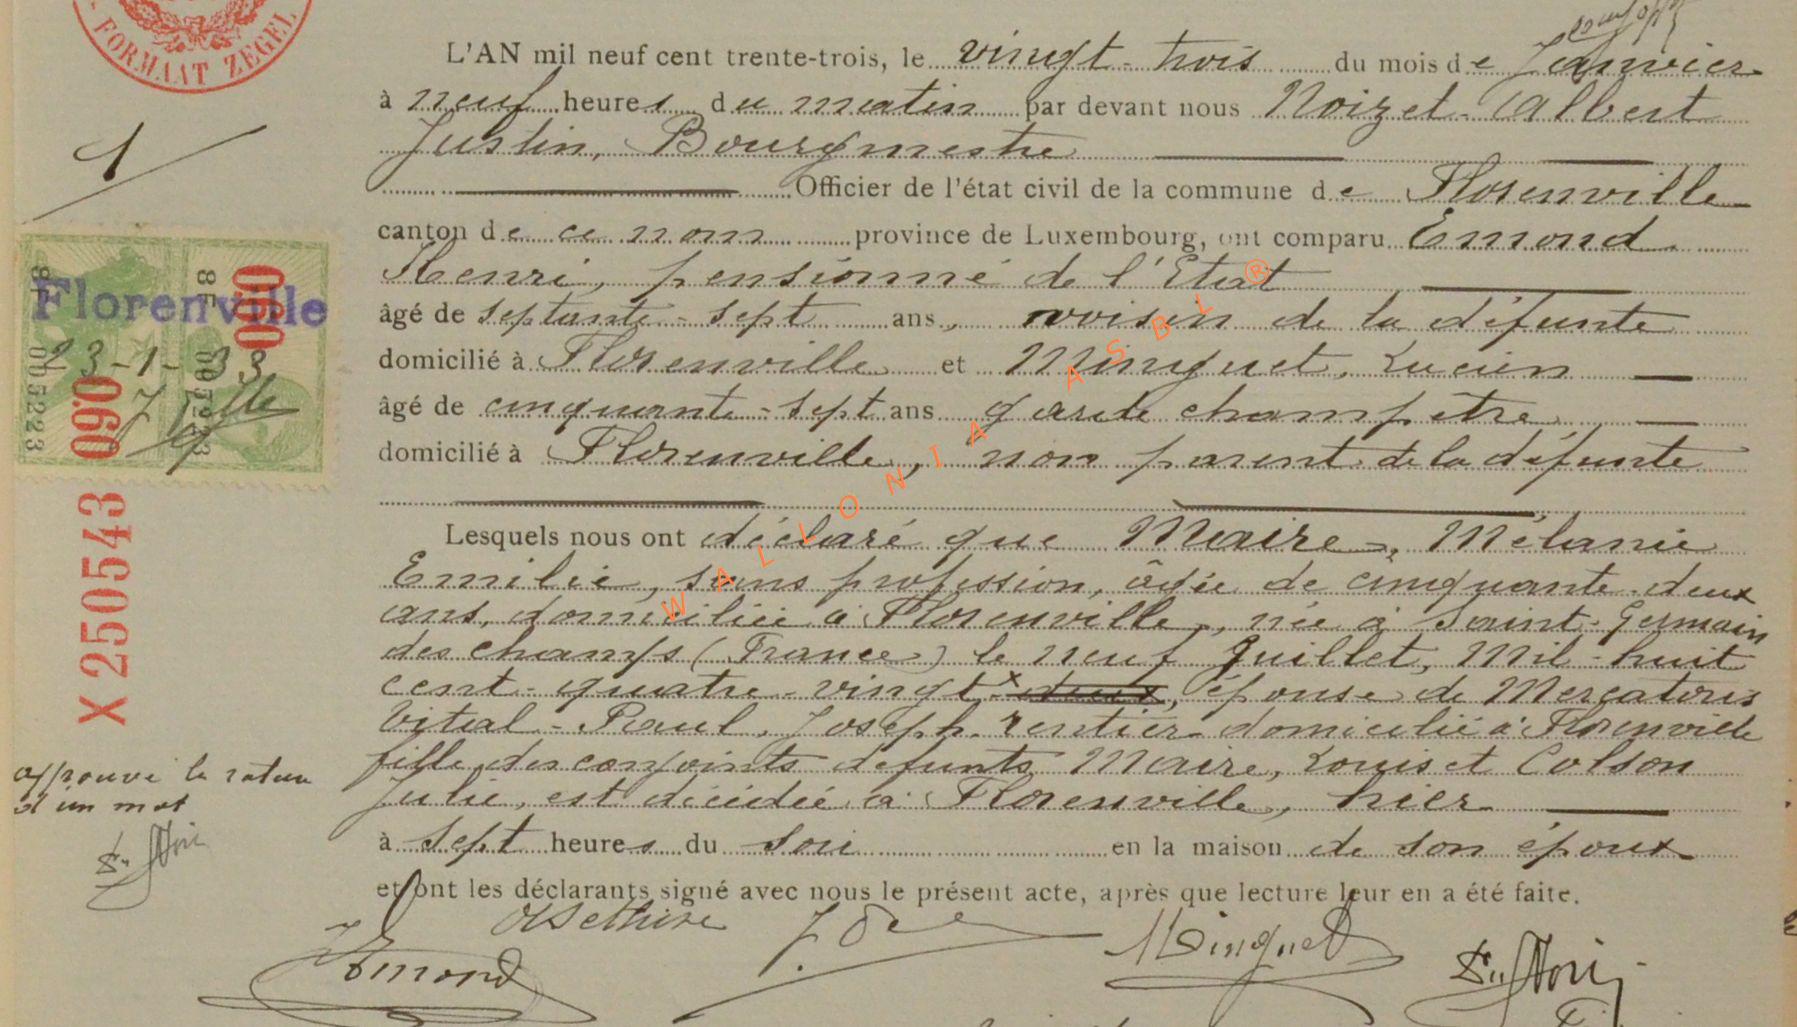 FORMAAT ZEGEL
1
L'AN mil neuf cent trente-trois, le vingt-trois du mois de Janvier
à neuf heures du matin par devant nous Noizet Albert
Justin, Bourgmestre
Officier de l'état civil de la commune de Florenville
canton de ce nom province de Luxembourg, ont comparu Emond
Henri, pensionné de l'Etat
âgé de septante-sept ans, voisin de la défunte
domicilié à Florenville et Minguet, Lucien
âgé de cinquante-sept ans garde champêtre
domicilié à Florenville, non parent de la défunte
Lesquels nous ont déclaré que Maire, Mélanie
Emilie, sans profession, âgée de cinquante-deux
ans, domiciliée à Florenville, née à Saint-Germain
des champs (France) le neuf Juillet, Mil-huit
cent-quatre-vingt x deux, épouse de Mercatoris
Vital-Paul, Joseph, rentier domicilié à Florenville
fille des conjoints défunts Maire, Louis et Colson
Julie, est décédée à Florenville, hier
à sept heures du soir en la maison de son époux
et ont les déclarants signé avec nous le présent acte, après que lecture leur en a été faite.
HEmond
Minguet
Florenville
23-1-33
8F
0.60
0.60
005223
005223
X 250543
approuvé la rature
d'un mot
WALLONIA ASBL ®